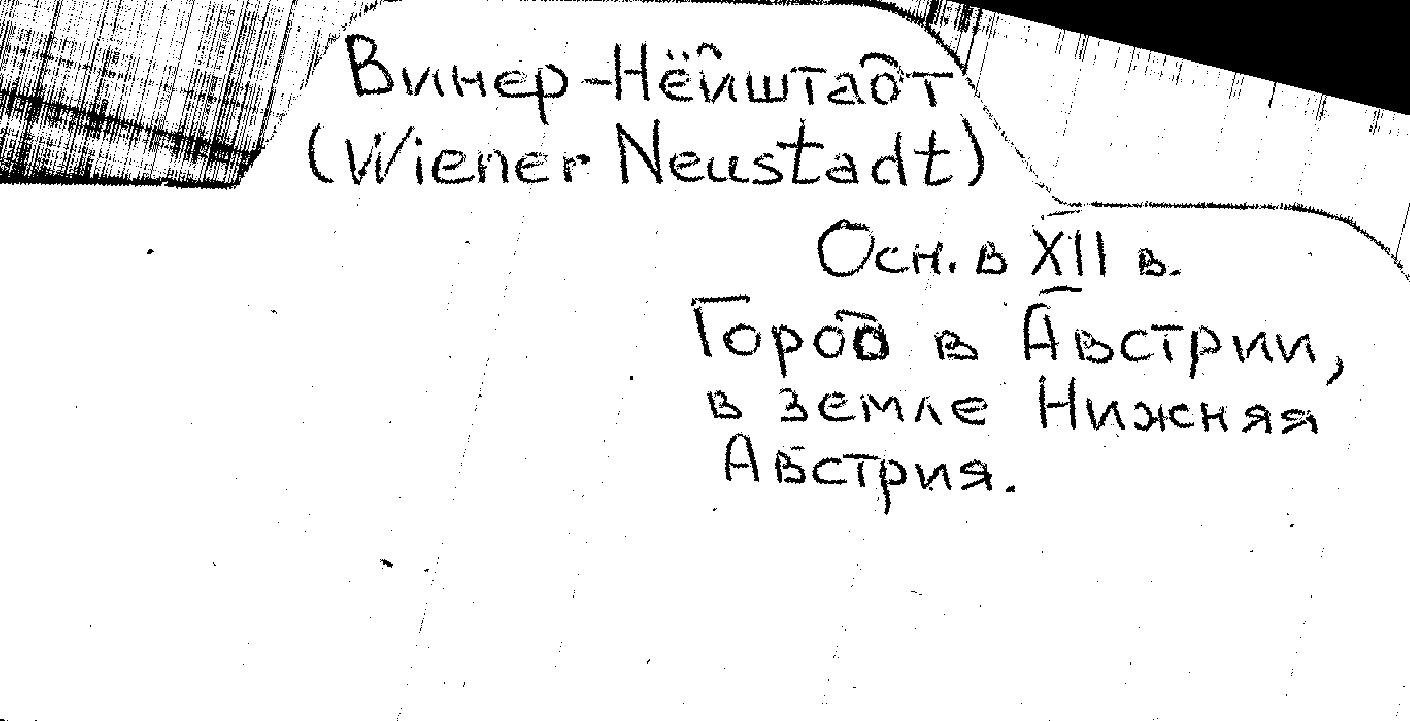 Винер-Нёйштадт
(Wiener Neustadt)
Осн. в XII в.
Город в Австрии,
в земле Нижняя
Австрия.